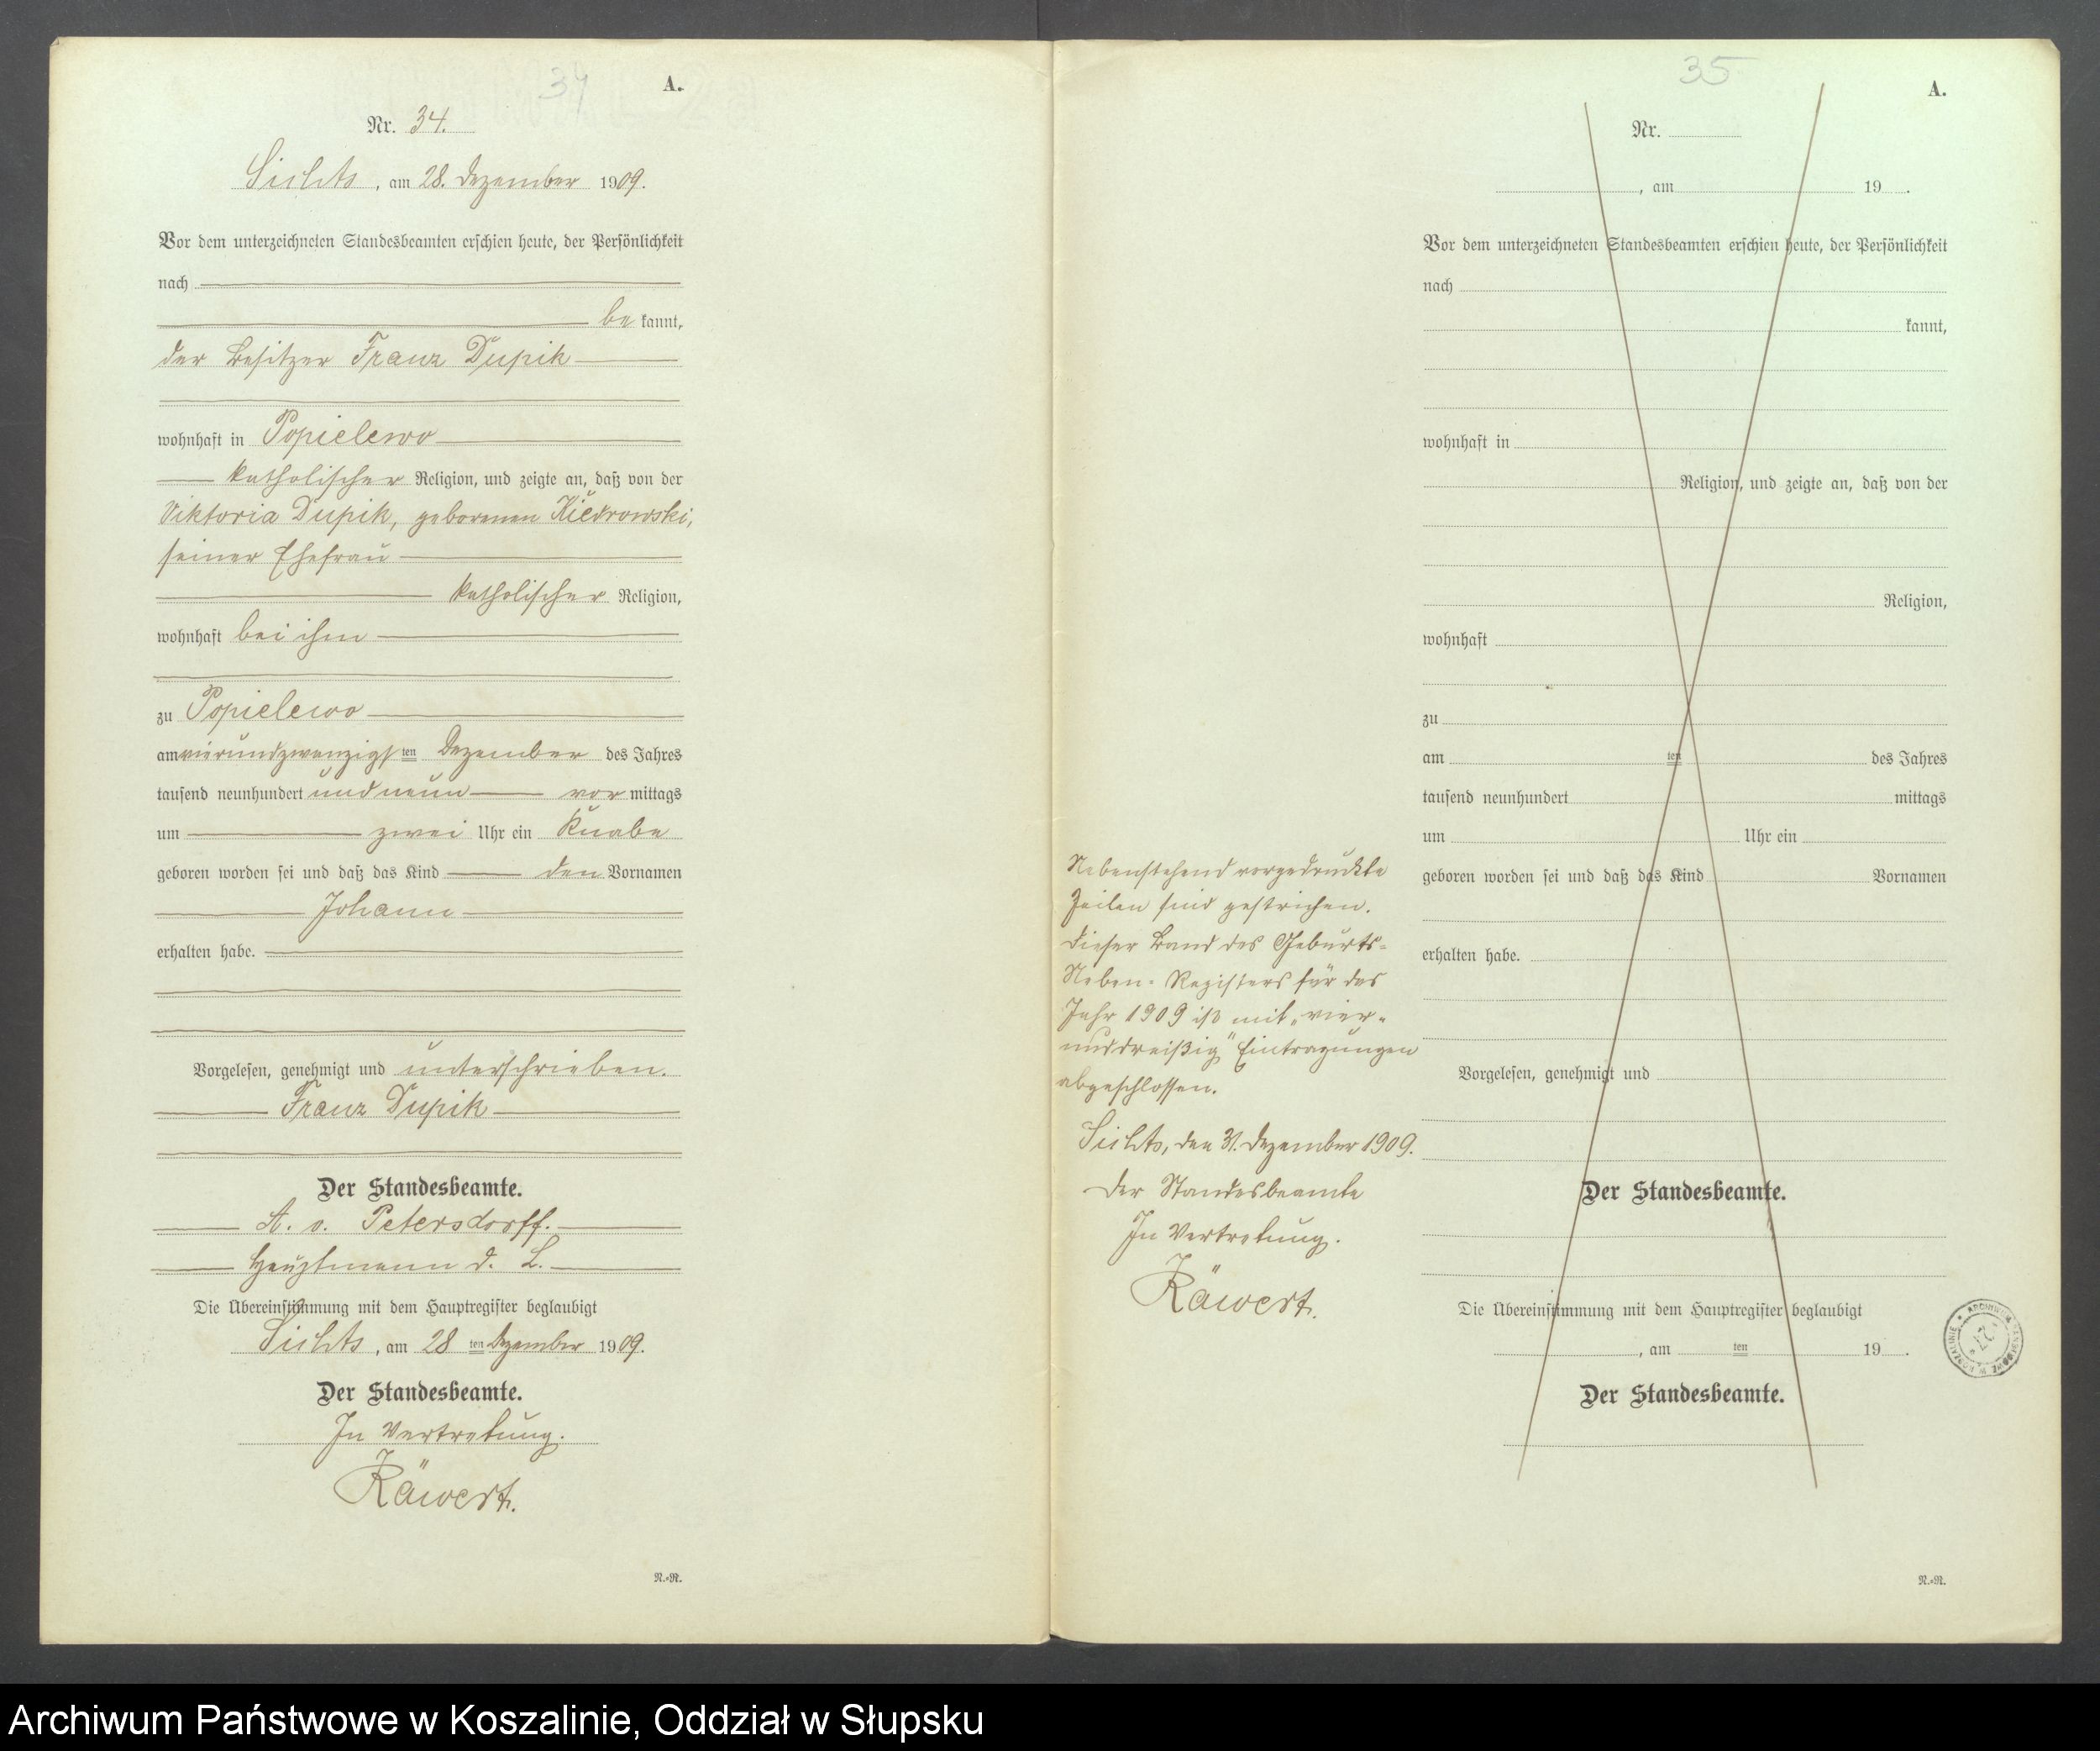 34
A.
Nr. 34.
Sichts, am 28. Dezember 1909.
Vor dem unterzeichneten Standesbeamten erschien heute, der Persönlichkeit
nach
be kannt,
der Besitzer Franz Dupik
wohnhaft in Popielewo
katholischer Religion, und zeigte an, daß von der
Viktoria Dupik, geborenen Kiedrowski,
seiner Ehefrau
katholischer Religion,
wohnhaft bei ihm
zu Popielewo
am vierundzwanzigsten Dezember des Jahres
tausend neunhundert und neun vor mittags
um zwei Uhr ein Knabe
geboren worden sei und daß das Kind den Vornamen
Johann
erhalten habe.
Vorgelesen, genehmigt und unterschrieben.
Franz Dupik
Der Standesbeamte.
A. v. Petersdorff.
Hauptmann d. L.
Die Übereinstimmung mit dem Hauptregister beglaubigt
Sichts, am 28 ten Dezember 1909.
Der Standesbeamte.
In Vertretung.
Räwert.
N.-R.
35
A.
Nr.
, am 19 .
Vor dem unterzeichneten Standesbeamten erschien heute, der Persönlichkeit
nach
kannt,
wohnhaft in
Religion, und zeigte an, daß von der
Religion,
wohnhaft
zu
am ten des Jahres
tausend neunhundert mittags
um Uhr ein
geboren worden sei und daß das Kind Vornamen
erhalten habe.
Vorgelesen, genehmigt und
Der Standesbeamte.
Die Übereinstimmung mit dem Hauptregister beglaubigt
, am ten 19 .
Der Standesbeamte.
N.-R.
Nebenstehend vorgedruckte
Zeilen sind gestrichen.
Dieser Band des Geburts-
Neben-Registers für das
Jahr 1909 ist mit „vier-
unddreißig" Eintragungen
abgeschlossen.
Sichts, den 31. Dezember 1909.
Der Standesbeamte
In Vertretung.
Räwert.
Archiwum Państwowe w Koszalinie, Oddział w Słupsku